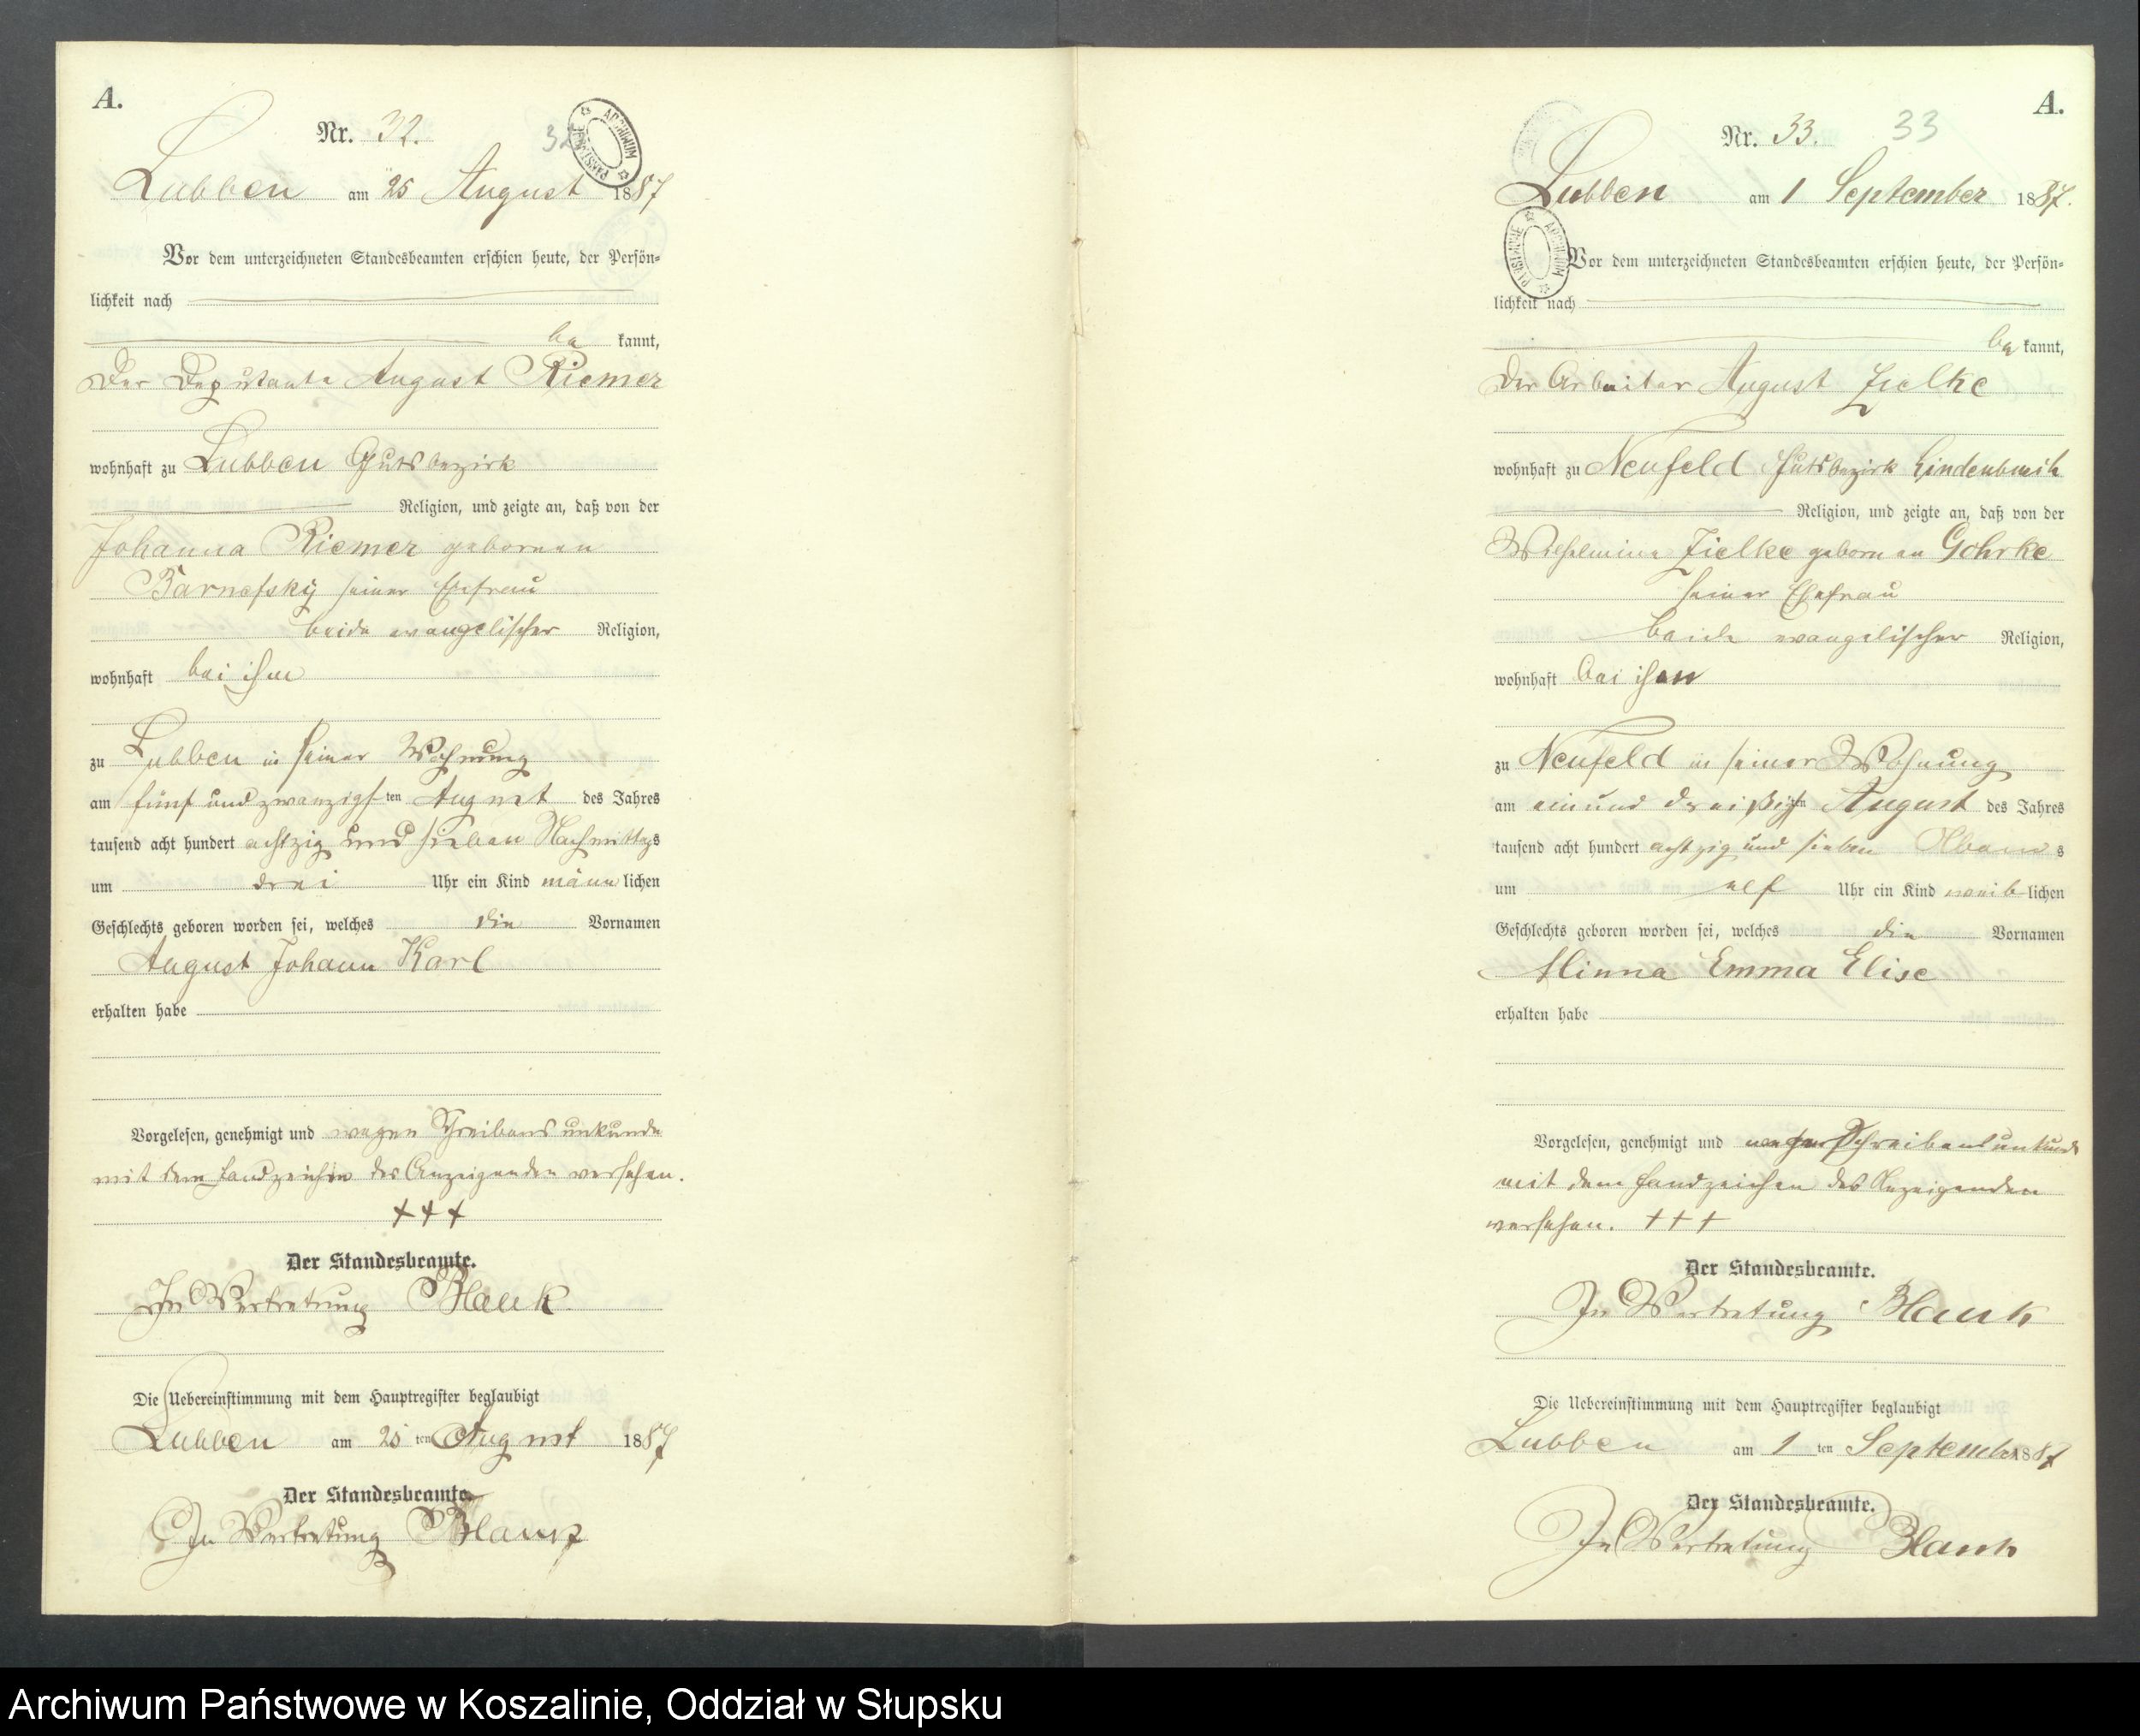 A.
Nr. 32.
32
ARCHIWUM PAŃSTWOWE
Lubben am 25 August 1887
Vor dem unterzeichneten Standesbeamten erschien heute, der Persön-
lichkeit nach
be kannt,
Der Deputante August Riemer
wohnhaft zu Lubben Gutsbezirk
Religion, und zeigte an, daß von der
Johanna Riemer geborenen
Barnefsky seiner Ehefrau
beide evangelischer Religion,
wohnhaft bei ihm
zu Lubben in seiner Wohnung
am fünf und zwanzigsten August des Jahres
tausend acht hundert achtzig und sieben Nachmittags
um drei Uhr ein Kind männlichen
Geschlechts geboren worden sei, welches die Vornamen
August Johann Karl
erhalten habe
Vorgelesen, genehmigt und wegen Schreibensunkunde
mit dem Handzeichen des Anzeigenden versehen.
+++
Der Standesbeamte.
In Vertretung Blank
Die Uebereinstimmung mit dem Hauptregister beglaubigt
Lubben am 25 ten August 1887
Der Standesbeamte.
In Vertretung Blank
A.
Nr. 33.
33
ARCHIWUM PAŃSTWOWE
Lubben am 1 September 1887.
Vor dem unterzeichneten Standesbeamten erschien heute, der Persön-
lichkeit nach
be kannt,
Der Arbeiter August Zielke
wohnhaft zu Neufeld Gutsbezirk Lindenbusch
Religion, und zeigte an, daß von der
Wilhelmine Zielke geborenen Gohrke
seiner Ehefrau
beide evangelischer Religion,
wohnhaft bei ihm
zu Neufeld in seiner Wohnung
am einund dreißigsten August des Jahres
tausend acht hundert achtzig und sieben Abends
um elf Uhr ein Kind weiblichen
Geschlechts geboren worden sei, welches die Vornamen
Minna Emma Elise
erhalten habe
Vorgelesen, genehmigt und wegen Schreibensunkunde
mit dem Handzeichen des Anzeigenden
versehen. +++
Der Standesbeamte.
In Vertretung Blank
Die Uebereinstimmung mit dem Hauptregister beglaubigt
Lubben am 1 ten September 1887
Der Standesbeamte.
In Vertretung Blank
Archiwum Państwowe w Koszalinie, Oddział w Słupsku